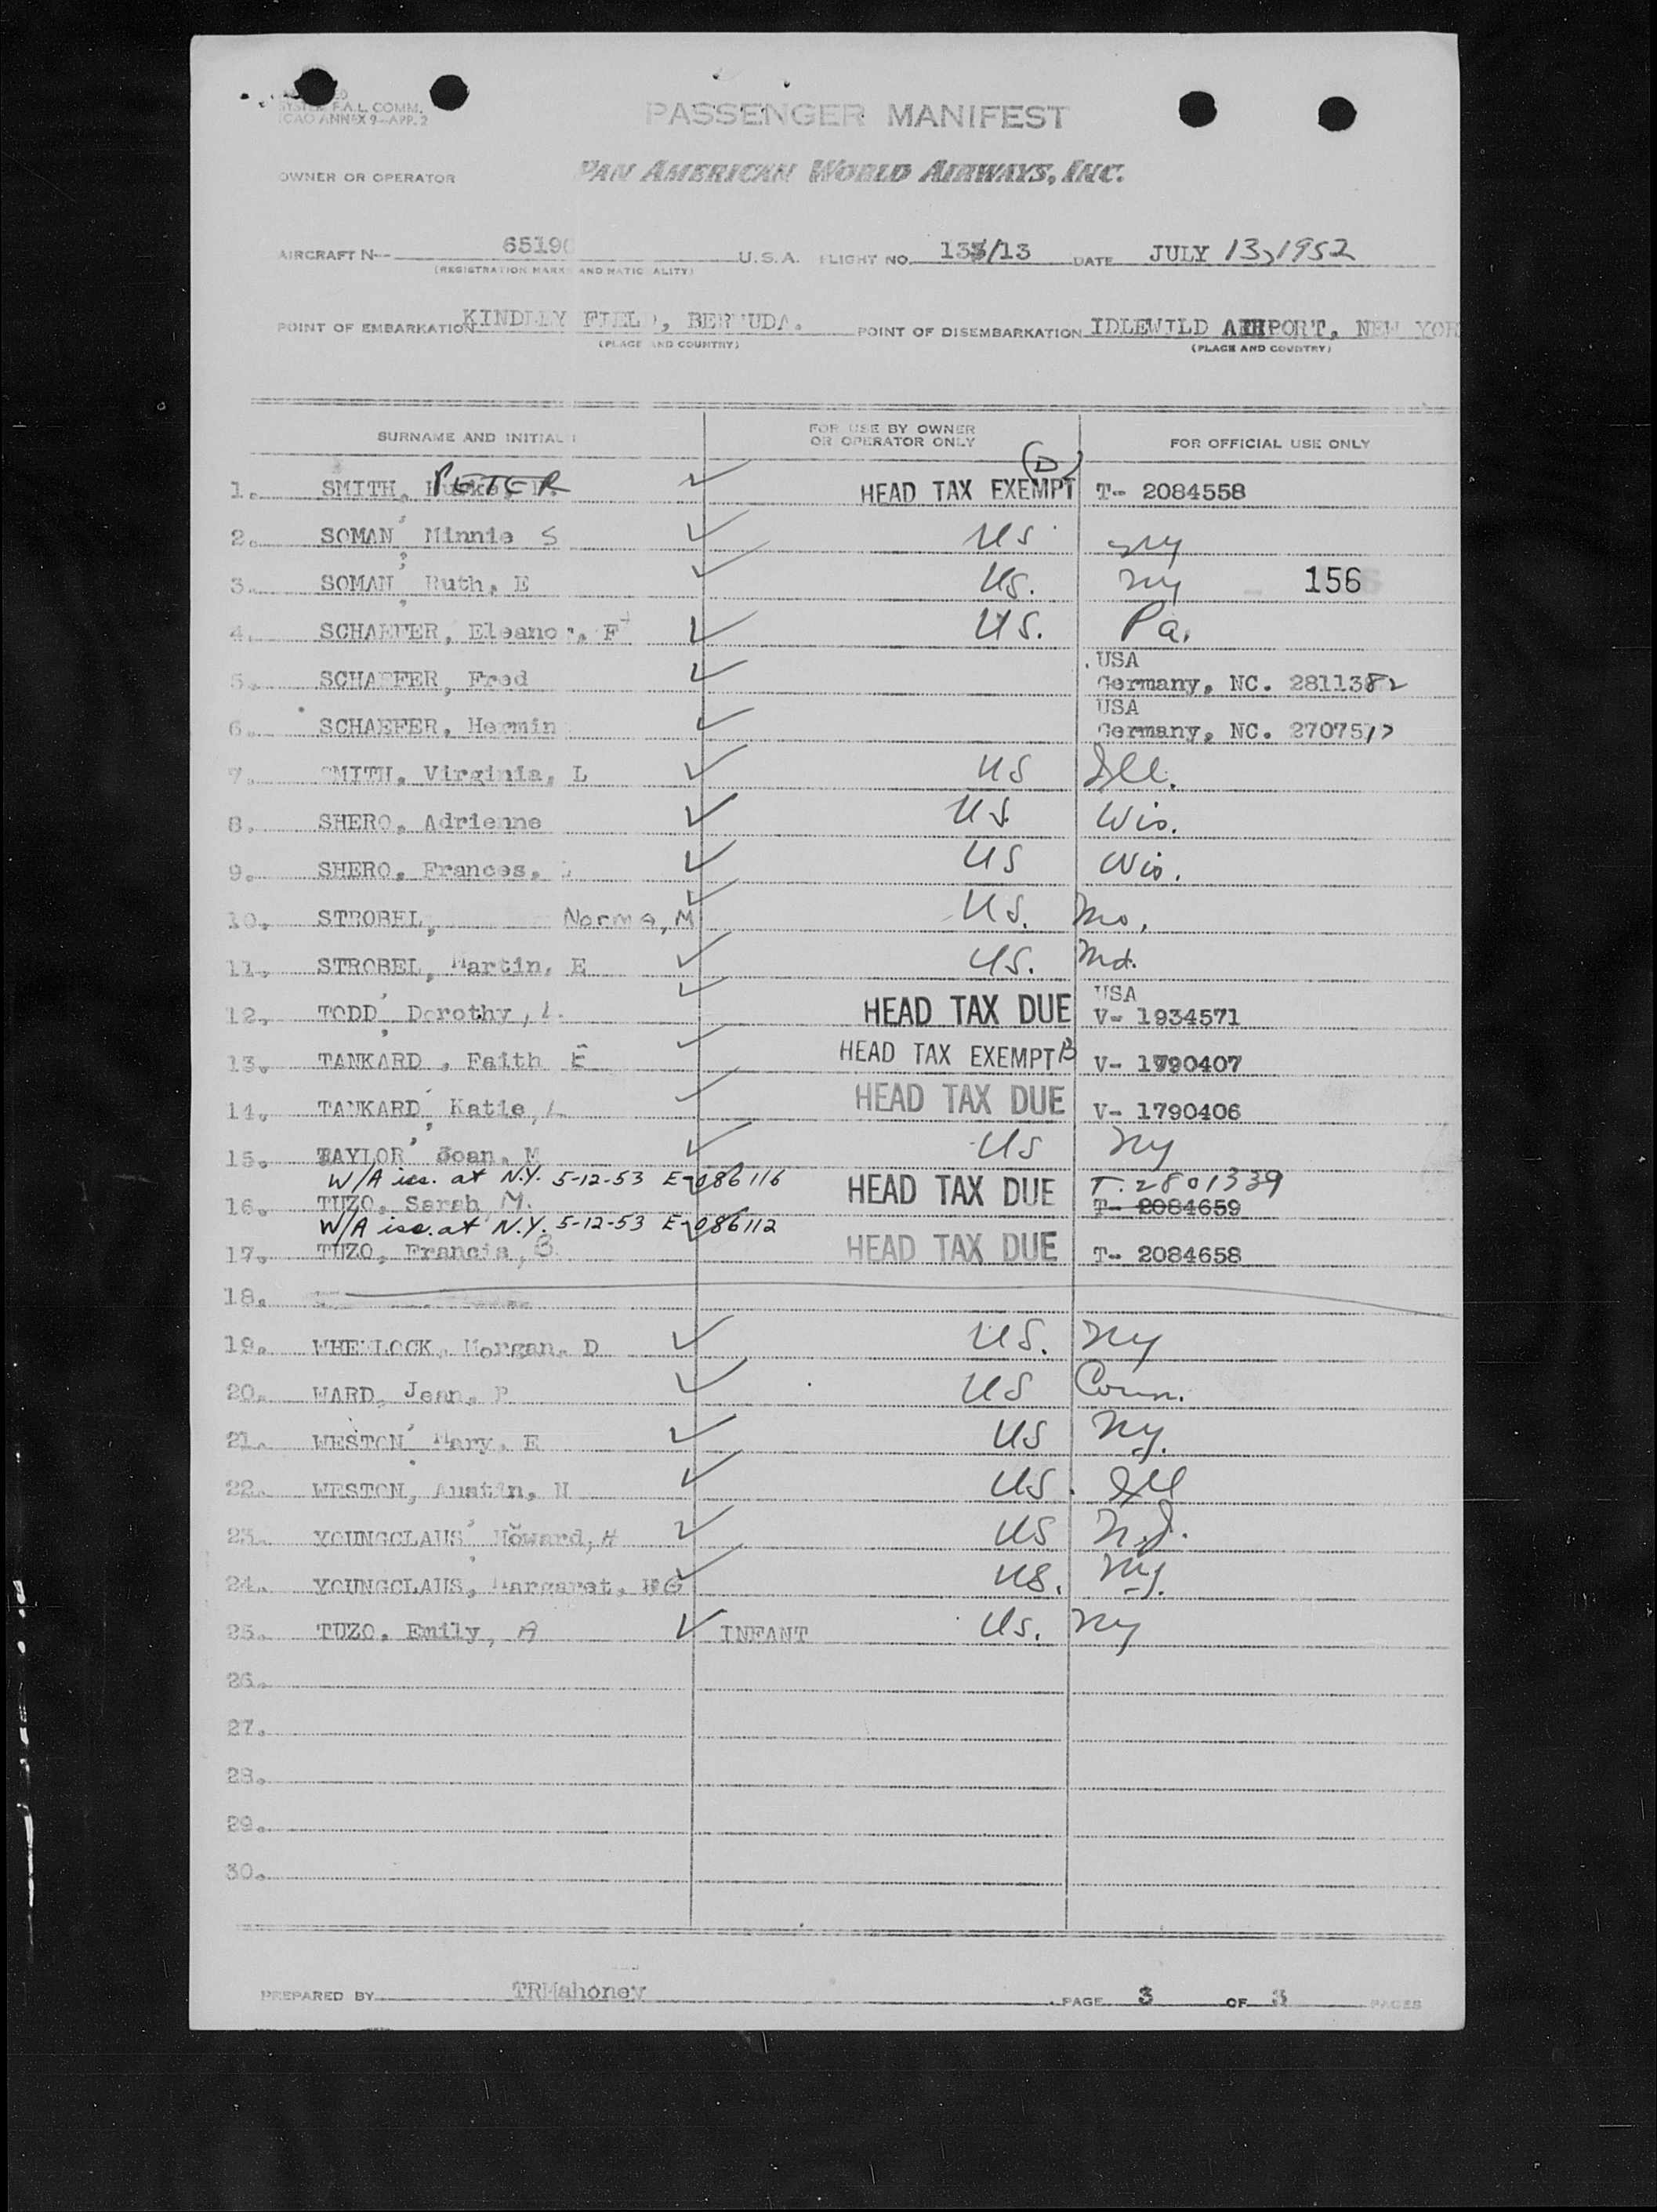 SYSTEM F.A.L. COMM.
ICAO ANNEX 9-APP. 2
PASSENGER MANIFEST
OWNER OR OPERATOR PAN AMERICAN WORLD AIRWAYS, INC.
AIRCRAFT N-- 65190 U.S.A. FLIGHT NO. 133/13 DATE JULY 13, 1952
(REGISTRATION MARKS AND NATIONALITY)
POINT OF EMBARKATION KINDLEY FIELD, BERMUDA. POINT OF DISEMBARKATION IDLEWILD AIRPORT, NEW YOR
(PLACE AND COUNTRY) (PLACE AND COUNTRY)
SURNAME AND INITIALS FOR USE BY OWNER OR OPERATOR ONLY FOR OFFICIAL USE ONLY
(D)
1. SMITH, PETER ✓ HEAD TAX EXEMPT T- 2084558
2. SOMAN, Minnie S ✓ US NY
3. SOMAN, Ruth, E ✓ US. NY 156
4. SCHAEFER, Eleanor, F ✓ US. Pa.
USA
5. SCHAEFER, Fred ✓ Germany, NC. 2811382
USA
6. SCHAEFER, Hermin ✓ Germany, NC. 27075
7. SMITH, Virginia, L ✓ US Ill.
8. SHERO, Adrienne ✓ US. Wis.
9. SHERO, Frances, ✓ US Wis.
10. STROBEL, Norma, M ✓ US. Mo.
11. STROBEL, Martin, E ✓ US. Md.
USA
12. TODD, Dorothy, L. ✓ HEAD TAX DUE V- 1934571
13. TANKARD, Faith E ✓ HEAD TAX EXEMPT B V- 1790407
14. TANKARD, Katie, L ✓ HEAD TAX DUE V- 1790406
15. TAYLOR, Joan, M ✓ US NY
W/A iss. at N.Y. 5-12-53 E-086116 T-2801339
16. TUZO, Sarah M. ✓ HEAD TAX DUE T- 2084659
W/A iss. at N.Y. 5-12-53 E-086112
17. TUZO, Francis, B ✓ HEAD TAX DUE T- 2084658
18.
19. WHEELOCK, Morgan, D ✓ US. NY
20. WARD, Jean, P ✓ US Conn.
21. WESTON, Mary, E ✓ US NY.
22. WESTON, Austin, N ✓ US. Ill
23. YOUNGCLAUS, Howard, H ✓ US N.J.
24. YOUNGCLAUS, Margaret, G ✓ US. NY.
25. TUZO, Emily, A ✓ INFANT US. NY
26.
27.
28.
29.
30.
PREPARED BY TRMahoney PAGE 3 OF 3 PAGES